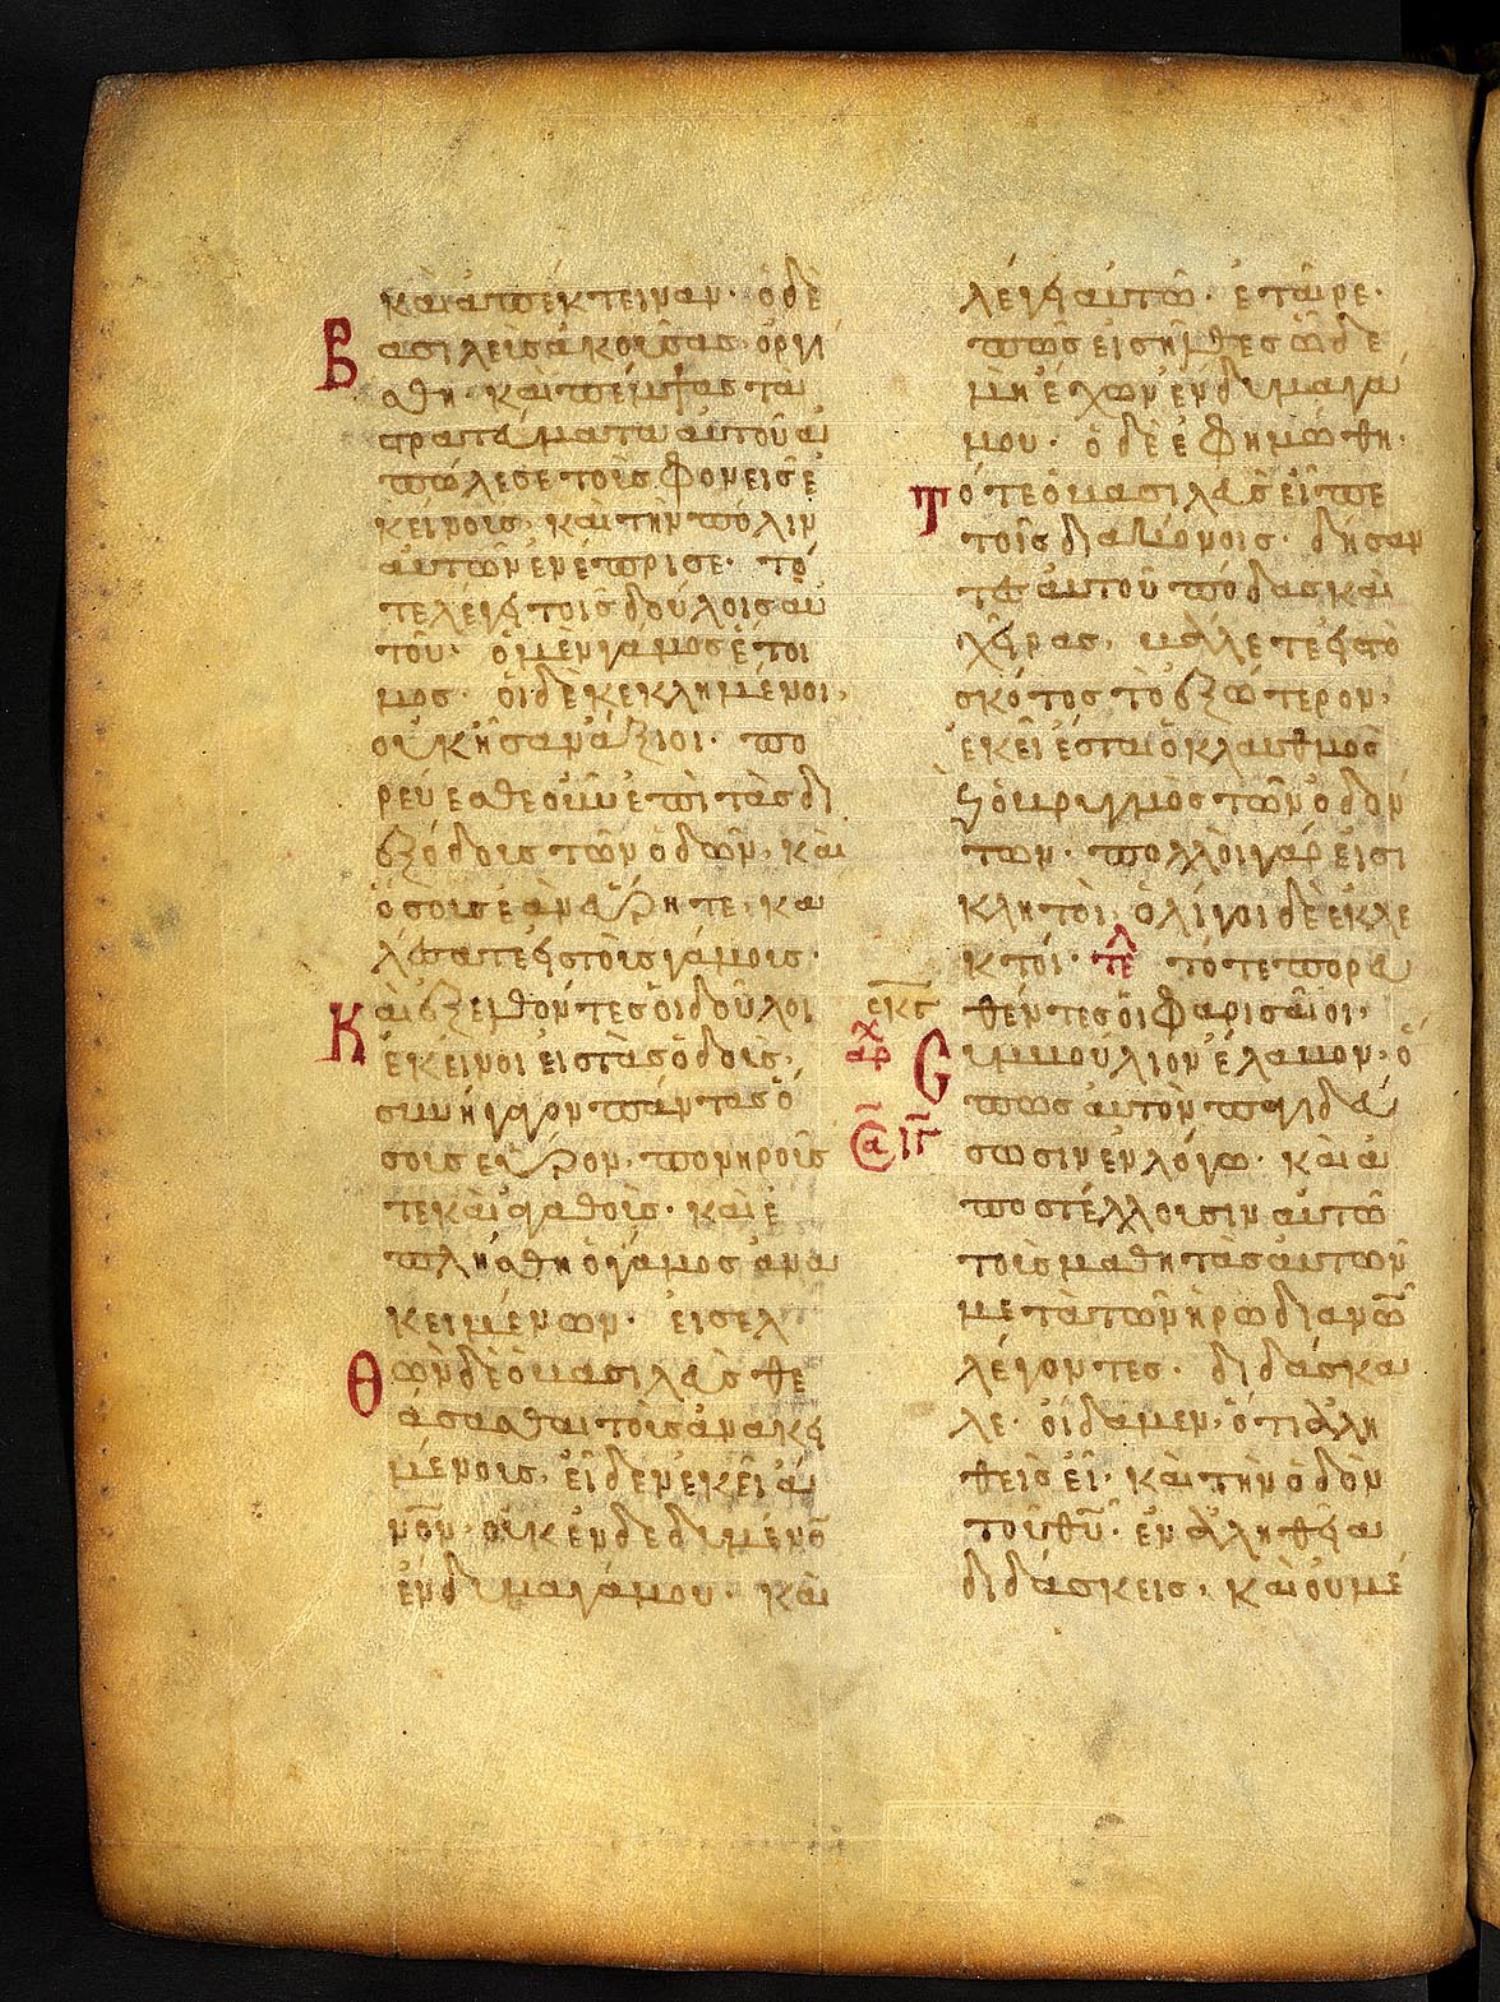 καὶ ἀπέκτειναν· ὁ δὲ
Βασιλεὺς ἀκούσας ὀργί
σθη· καὶ πέμψας τὰ
στρατεύματα αὐτοῦ ἀ
πώλεσε τοὺς φονεῖς ἐ
κείνους, καὶ τὴν πόλιν
αὐτῶν ἐνέπρισε· τό
τε λέγει τοῖς δούλοις αὐ
τοῦ· ὁ μὲν γάμος ἕτοι
μος· οἱ δὲ κεκλημένοι,
οὐκ ἦσαν ἄξιοι· πο
ρεύεσθε οὖν ἐπὶ τὰς δι
εξόδους τῶν ὁδῶν, καὶ
ὅσους ἐὰν εὕρητε, κα
λέσατε εἰς τοὺς γάμους·
Καὶ ἐξελθόντες οἱ δοῦλοι
ἐκεῖνοι εἰς τὰς ὁδοὺς,
συνήγαγον πάντας ὅ
σους εὗρον, πονηρούς
τε καὶ ἀγαθούς· καὶ ἐ
πλήσθη ὁ γάμος ἀνα
κειμένων· εἰσελ
Θὼν δὲ ὁ βασιλεὺς θε
άσασθαι τοὺς ἀνακει
μένους, εἶδεν ἐκεῖ ἄ
νον οὐκ ἐνδεδυμένο
ἔνδυμα γάμου· καὶ
λέγει αὐτῶ· ἑταῖρε·
πῶς εἰσῆλθες ὧδε
μὴ ἔχων ἔνδυμα γά
μου· ὁ δὲ ἐφημώθη·
Τότε ὁ βασιλεὺς εἶπε
τοῖς διακόνοις· δήσαν
τες αὐτοῦ πόδας καὶ
χεῖρας, βάλλετε εἰς τὸ
σκότος τὸ ἐξώτερον,
ἐκεῖ ἔσται ὁ κλαυθμὸς
ϗ ὁ βρυγμὸς τῶν ὀδόν
των· πολλοὶ γάρ εἰσι
κλητοὶ, ὀλίγοι δὲ ἐκλε
κτοί· τελ τότε πορευ
θέντες οἱ Φαρισαῖοι,
Συμβούλιον ἔλαβον, ὅ
πως αὐτὸν παγιδεύ
σωσιν ἐν λόγω· καὶ ἀ
ποστέλλουσιν αὐτῶ
τοὺς μαθητὰς αὐτῶν
μετὰ τῶν ἡρωδιανῶ
λέγοντες· διδάσκα
λε· οἴδαμεν, ὅτι ἀλη
θεὶς εἶ· καὶ τὴν ὁδὸν
τοῦ θυ· ἐν ἀληθεία
διδάσκεις, καὶ οὐ μέ